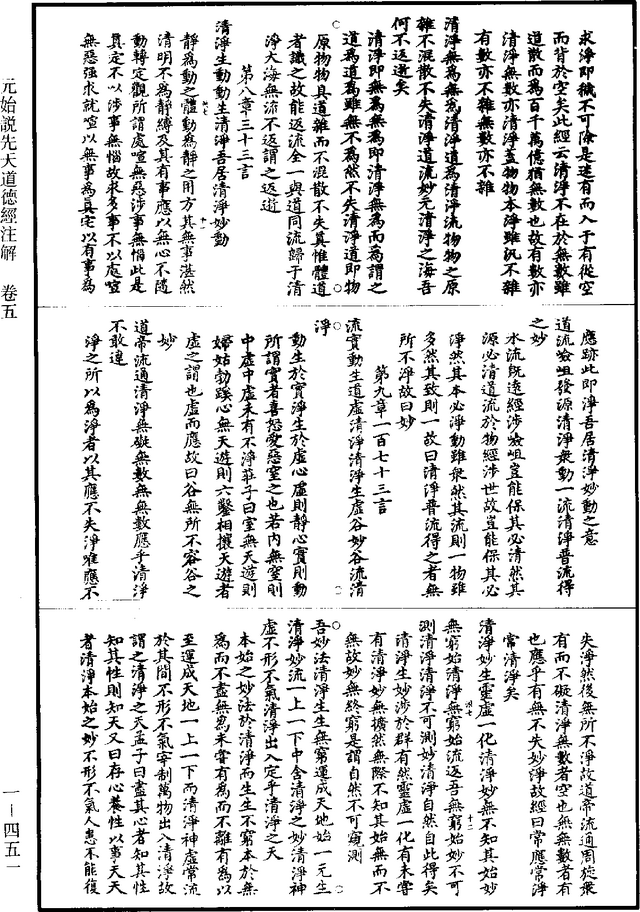 元始說先天大道德經注解　卷五
一—四五一
求淨即穢不可除是迷有而入于有從空
而背於空矣此經云清淨不在於無數雖
道散而為百千萬億猶無數也故有數亦
清淨無數亦清淨蓋物物本淨雖汎不雜
有數亦不雜無數亦不雜
清淨無為無為清淨道為清淨流物物之原
雜不混散不失清淨道流妙元清淨之海吾
何不返逝矣
清淨即無為無為即清淨無為而為謂之
道為道為雖無不為然不失清淨道即物
原物物具道雜而不混散不失真惟體道
者識之故能返流全一與道同流歸于清
淨大海無流不返謂之返逝
第八章三十三言
清淨生動動生清淨吾居清淨妙動
靜為動之體動為靜之用方其無事湛然
清明不為靜縛及其有事應以無心不隨
動轉定觀所謂處喧無惡涉事無惱此是
真定不以涉事無惱故求多事不以處喧
無惡強求就喧以無事為真宅以有事為
應跡此即淨吾居清淨妙動之意
道流嶮岨發源清淨眾動一流清淨普流得
之妙
水流既遠經涉嶮岨豈能保其必清然其
源必清道流於物經涉世故豈能保其必
淨然其本必淨動雖眾然其流則一物雖
多然其致則一故曰清淨普流得之者無
所不淨故曰妙
第九章一百七十三言
流實動生道虛清淨清淨生虛谷妙谷流清
淨
動生於實淨生於虛心虛則靜心實則動
所謂實者喜怒愛惡窒之也若內無窒則
中虛中虛未有不淨莊子曰室無天遊則
婦姑勃蹊心無天遊則六鑿相攘天遊者
虛之謂也虛而應故曰谷無所不容谷之
妙
道帝流通清淨無礙無數無無數應乎清淨
不敢違
淨之所以為淨者以其應不失淨唯應不
失淨然後無所不淨故道帝流通周旋眾
有而不礙清淨無數者空也無無數者有
也應乎有無不失妙淨故經曰常應常淨
常清淨矣
清淨妙生靈虛一化清淨妙無不知其始妙
無窮始清淨無窮始流返吾無窮始妙不可
測清淨清淨不可測妙清淨自然自此得矣
清淨生妙涉於群有然靈虛一化有未嘗
有清淨妙無擴然無際不知其始無而不
無故妙無終窮是謂自然不可窺測
吾妙法清淨生生無窮運成天地始一元生
清淨妙流一上一下中含清淨之妙清淨神
虛不形不氣清淨出入定乎清淨之天
本始之妙法於清淨而生生不窮本於無
為而不盡無為未嘗有為而不離有為以
至運成天地一上一下而清淨神虛常流
於其間不形不氣宰制萬物出入清淨故
謂之清淨之天孟子曰盡其心者知其性
知其性則知天又曰存心養性以事天天
者清淨本始之妙不形不氣人患不能復